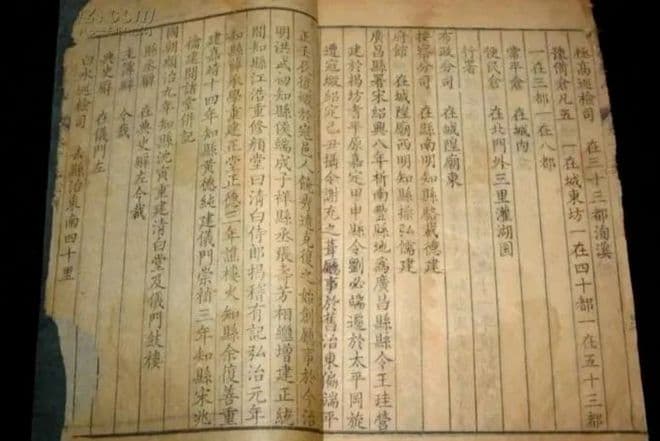 極高巡檢司 在三十三都
豫備倉凡五 一在城東坊一在四十都一在五十三都
一在三都一在八都
常平倉 在城內
便民倉 在北門外三里灌湖圍
行署
布政分司 在城隍廟東
按察分司 在縣南明知縣 德建
府館 在城隍廟西明知縣 弘儒建
廣昌縣署宋紹興八年析南豐縣地為廣昌縣縣令王珪營
建於揭坊耆平原嘉定甲申縣令劉必 遷於太平岡旋
遭寇燬紹定己丑攝令謝充之葺廳事於舊治東偏端平
正壬辰復燬於寇邑人饒 克復之始創廳事於今治
明洪武四知縣侯瑞成子祥縣丞張壽芳相繼增建正統
間知縣江浩重修顏堂曰清白侍郎揭稽有記弘治元年
知縣 承學重建正堂正德三年譙樓火知縣余復善重
建嘉靖十四年知縣黃德純建儀門崇禎三年知縣宋兆
檜建開諸堂併記
國朝順治九年知縣沈寅重建清白堂及儀門鼓樓
縣丞廨 在典史廨左今裁
主簿廨 今裁
典史廨 在儀門左
白水巡檢司 去縣治東南四十里